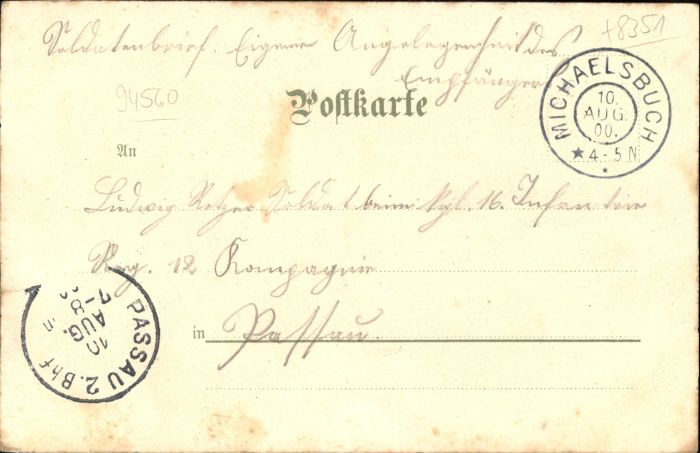 +8351
Soldatenbrief. Eigene Angelegenheit des
Empfängers
94560
Postkarte
MICHAELSBUCH
10.
AUG.
00.
4-5 N
An
Ludwig Retzer Soldat beim Kgl. 16. Infanterie
Reg. 12 Kompagnie
in Passau.
PASSAU 2. Bhf
10
AUG.